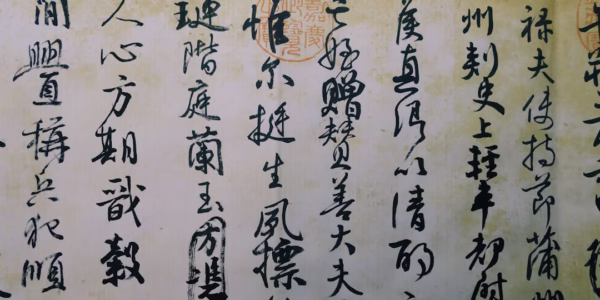 祿夫使持節蒲
州刺史上輕車都尉
侯真卿以清酌
亡姪贈贊善大夫
惟尔挺生夙標
璉階庭蘭玉方憑
人心方期戩穀
間釁稱兵犯順